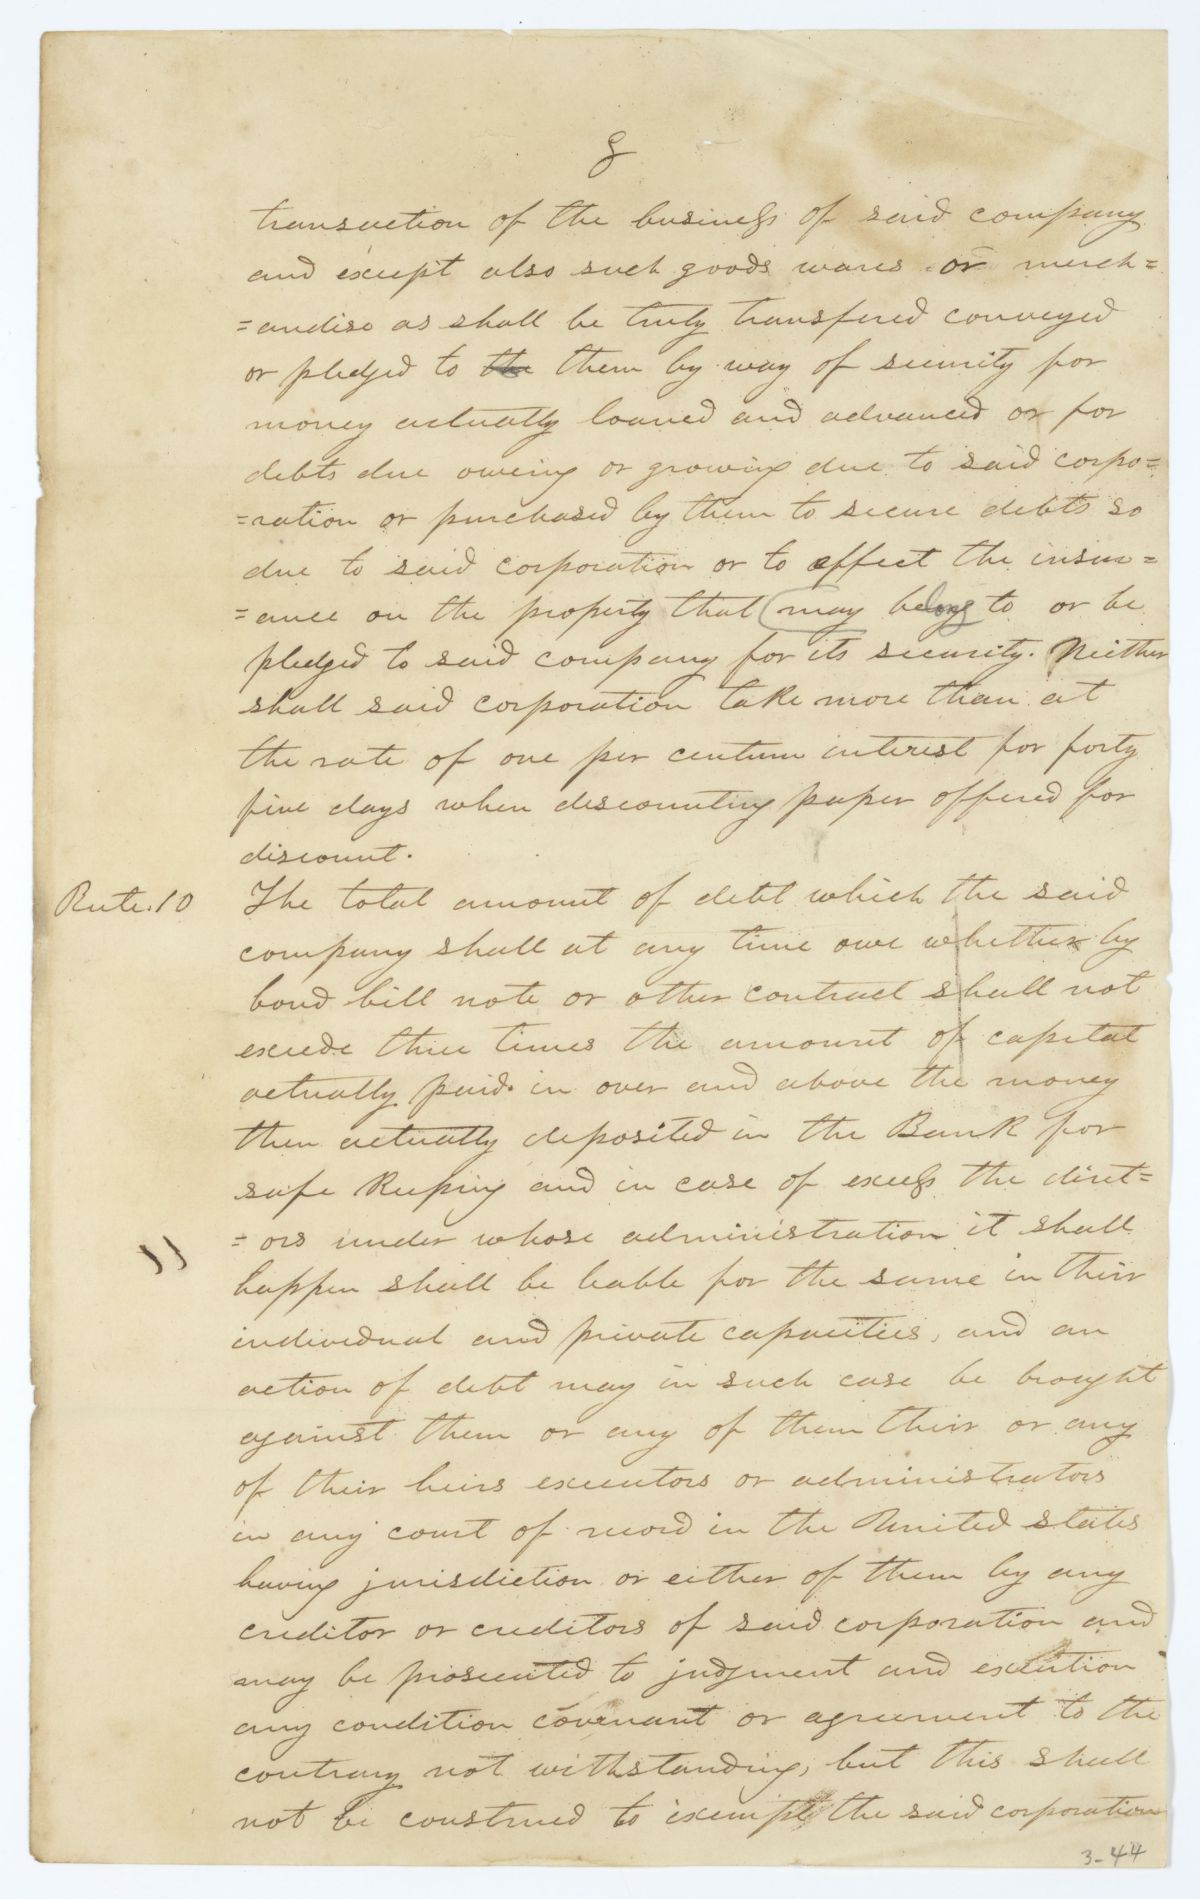 8
transaction of the business of said company
and except also such goods wares or merch=
=andise as shall be truly transfered conveyed
or pledged to the them by way of security for
money actually loaned and advanced or for
debts due oweing or growing due to said corpo=
=ration or purchased by them to secure debts so
due to said corporation or to effect the insur=
=ance on the property that may belong to or be
pledged to said company for its security. Neither
shall said corporation take more than at
the rate of one per centum interest for forty
five days when discounting paper offered for
discount.
Rule. 10 The total amount of debt which the said
company shall at any time owe whether by
bond bill note or other contract shall not
excede three times the amount of capital
actually paid in over and above the money
then actually deposited in the Bank for
safe keeping and in case of excess the diret=
11 =ors under whose administration it shall
happen shall be liable for the same in their
individual and private capacities, and an
action of debt may in such case be brought
against them or any of them their or any
of their heirs executors or administrators
in any court of record in the United states
having jurisdiction or either of them by any
creditor or creditors of said corporation and
may be prosecuted to judgment and execution
any condition covenant or agreement to the
contrary not withstanding, but this shall
not be construed to exempt the said corporation
3-44